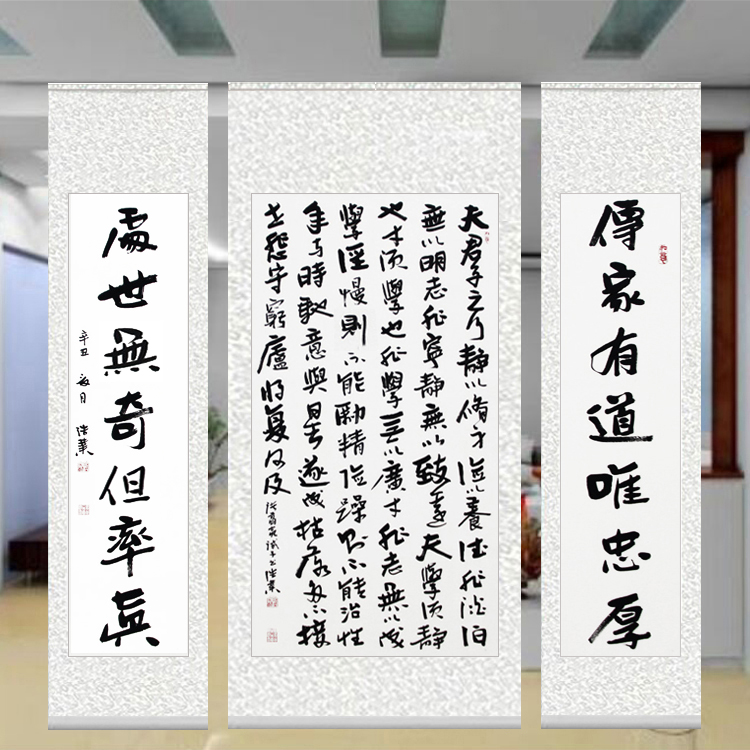 傳家有道唯忠厚
夫君子之行静以脩身俭以養德非澹泊
無以明志非寧静無以致遠夫學須静
也才須學也非學無以廣才非志無以成
學淫慢則不能勵精险躁則不能治性
年与時馳意與日去遂成枯落多不接
世悲守窮廬将复何及
诸葛亮诫子书
處世無奇但率真
辛丑